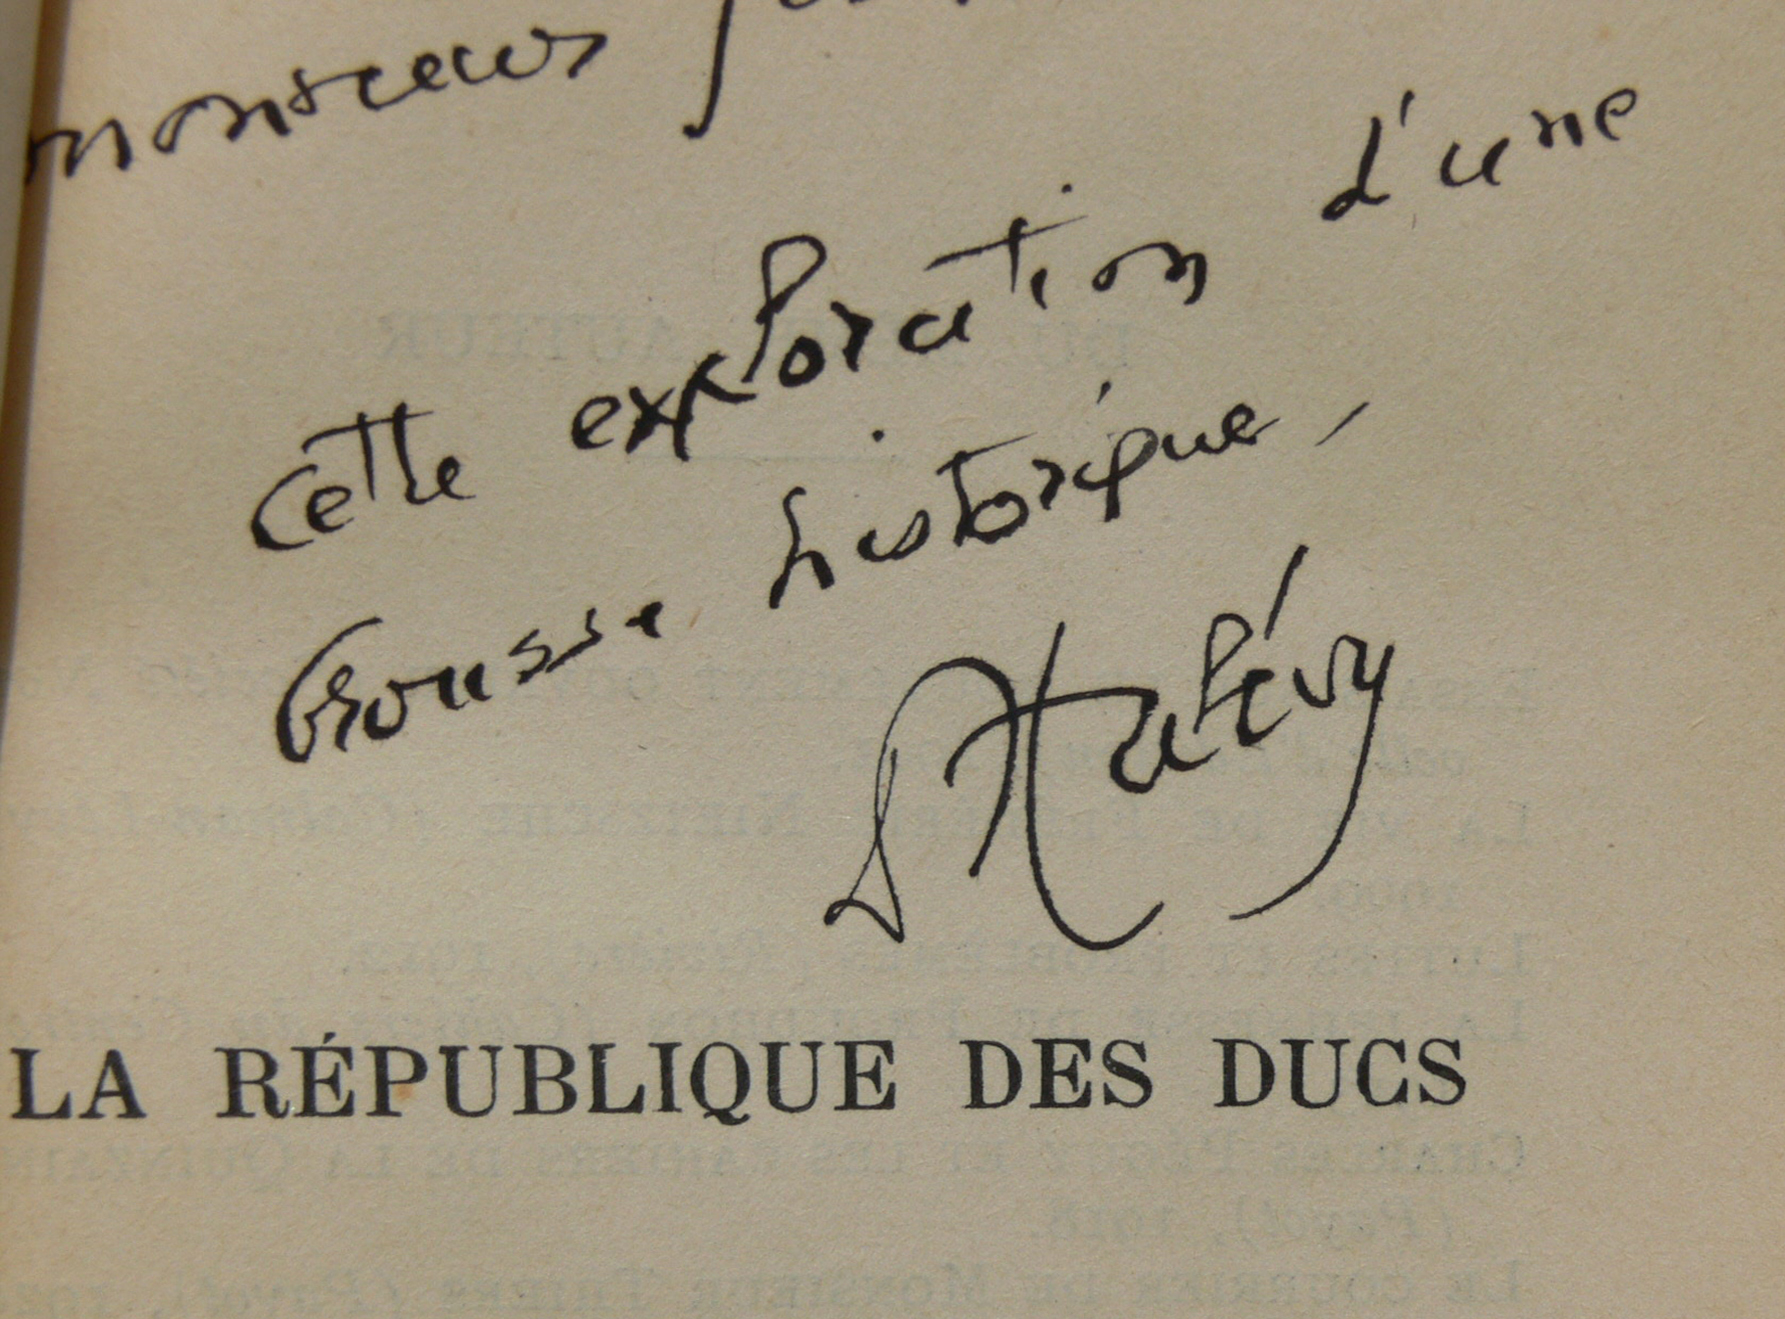 monsieur
cette exploration d'une
brousse historique -
D Halévy
LA RÉPUBLIQUE DES DUCS